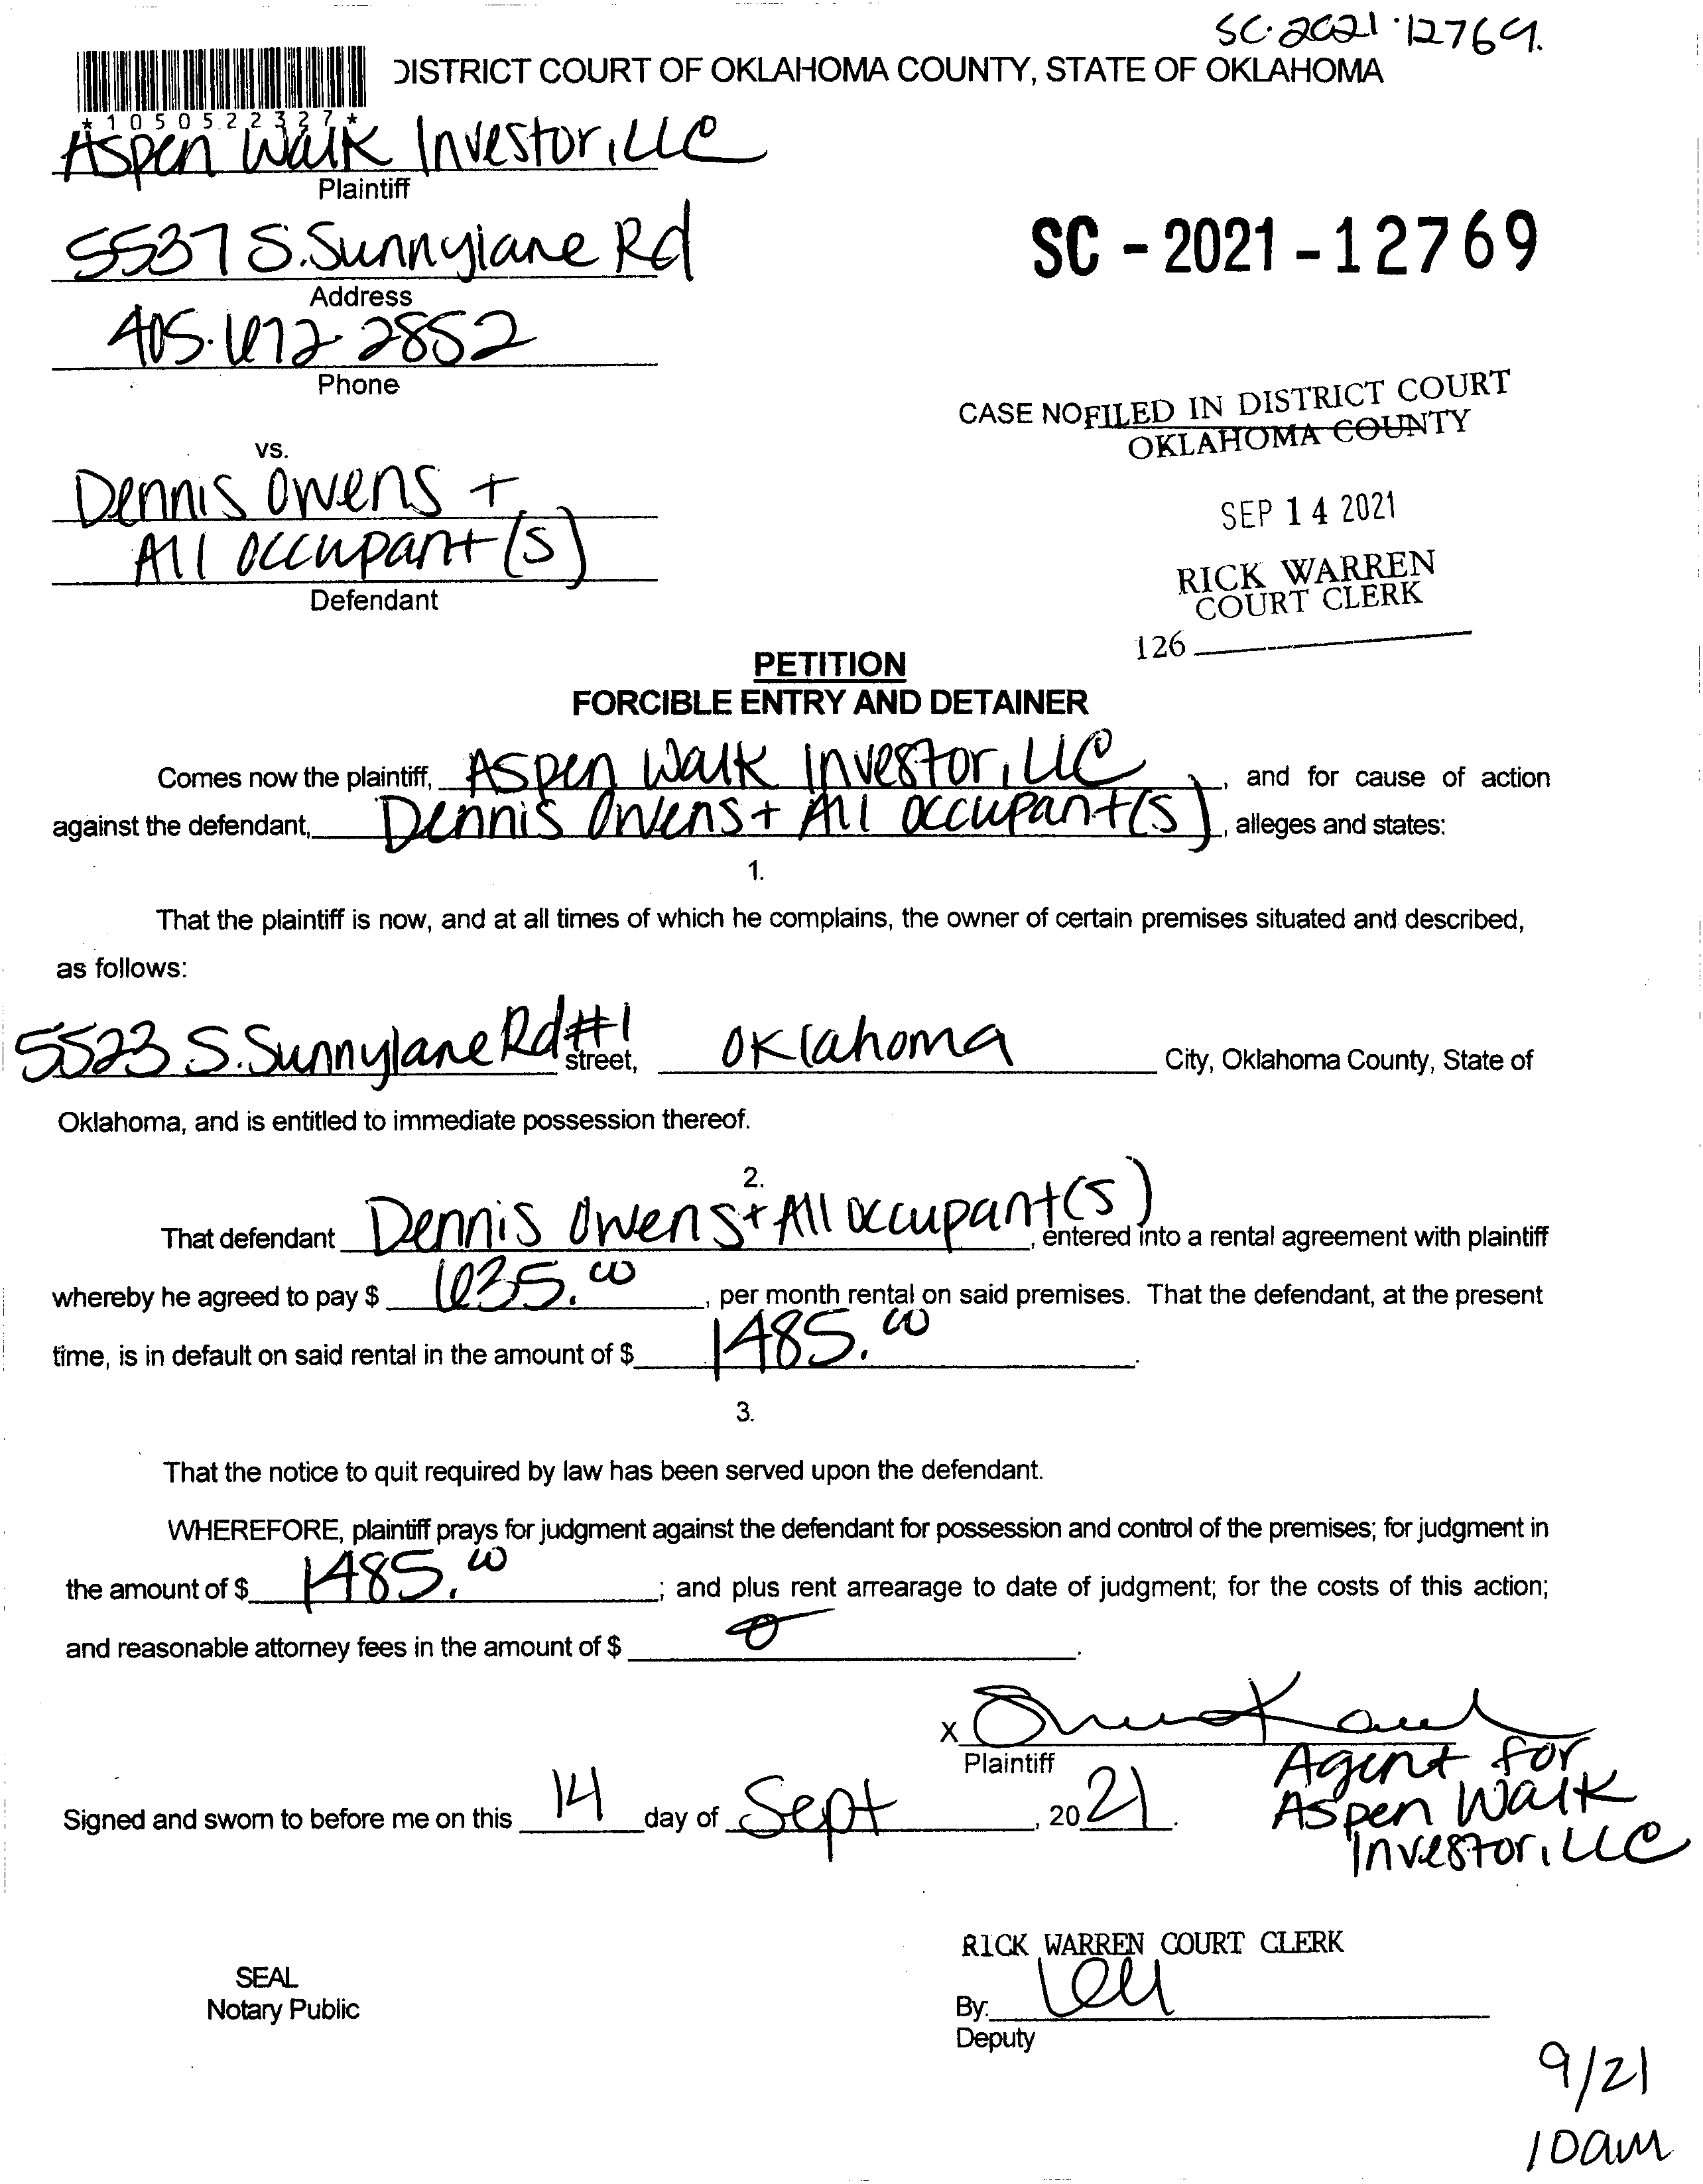 SC-2021-12769.
DISTRICT COURT OF OKLAHOMA COUNTY, STATE OF OKLAHOMA
*1050522327*
Aspen Walk Investor, LLC
Plaintiff
5537 S. Sunnylane Rd
Address
SC - 2021 - 12769
405.672-2852
Phone
CASE NO FILED IN DISTRICT COURT
OKLAHOMA COUNTY
vs.
Dennis Owens +
SEP 14 2021
All occupant(s)
Defendant
RICK WARREN
COURT CLERK
126
PETITION
FORCIBLE ENTRY AND DETAINER
Comes now the plaintiff, Aspen Walk Investor, LLC, and for cause of action
against the defendant, Dennis Owens + All occupant(s), alleges and states:
1.
That the plaintiff is now, and at all times of which he complains, the owner of certain premises situated and described,
as follows:
5523 S. Sunnylane Rd #1 street, Oklahoma City, Oklahoma County, State of
Oklahoma, and is entitled to immediate possession thereof.
2.
That defendant Dennis Owens + All occupant(s), entered into a rental agreement with plaintiff
whereby he agreed to pay $ 635.00, per month rental on said premises. That the defendant, at the present
time, is in default on said rental in the amount of $ 1485.00.
3.
That the notice to quit required by law has been served upon the defendant.
WHEREFORE, plaintiff prays for judgment against the defendant for possession and control of the premises; for judgment in
the amount of $ 1485.00; and plus rent arrearage to date of judgment; for the costs of this action;
and reasonable attorney fees in the amount of $ 0.
X
Plaintiff
Agent for
Aspen Walk
Investor, LLC
Signed and sworn to before me on this 14 day of Sept, 2021.
RICK WARREN COURT CLERK
SEAL
Notary Public
By:
Deputy
9/21
10am